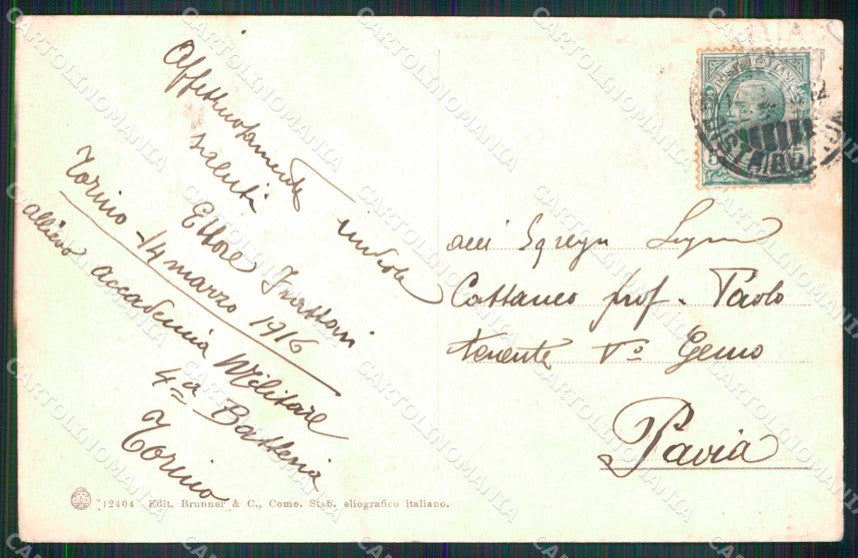 Affettuosamente
saluti
Ettore Frattari
Torino - 14 marzo 1916
allievo accademia Militare
4a Batteria
Torino
Cattaneo prof. Paolo
tenente Vo Genio
Pavia
12404 Edit. Brunner & C., Como. Stab. eliografico italiano.
POSTE ITALIANE
5
CARTOLINOMANIA